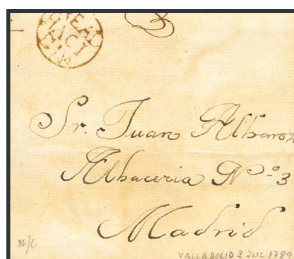 Sr. Juan Albarroz
Albaceria Nº 3
Madrid
N/C
VALLADOLID 3 JUL 1789